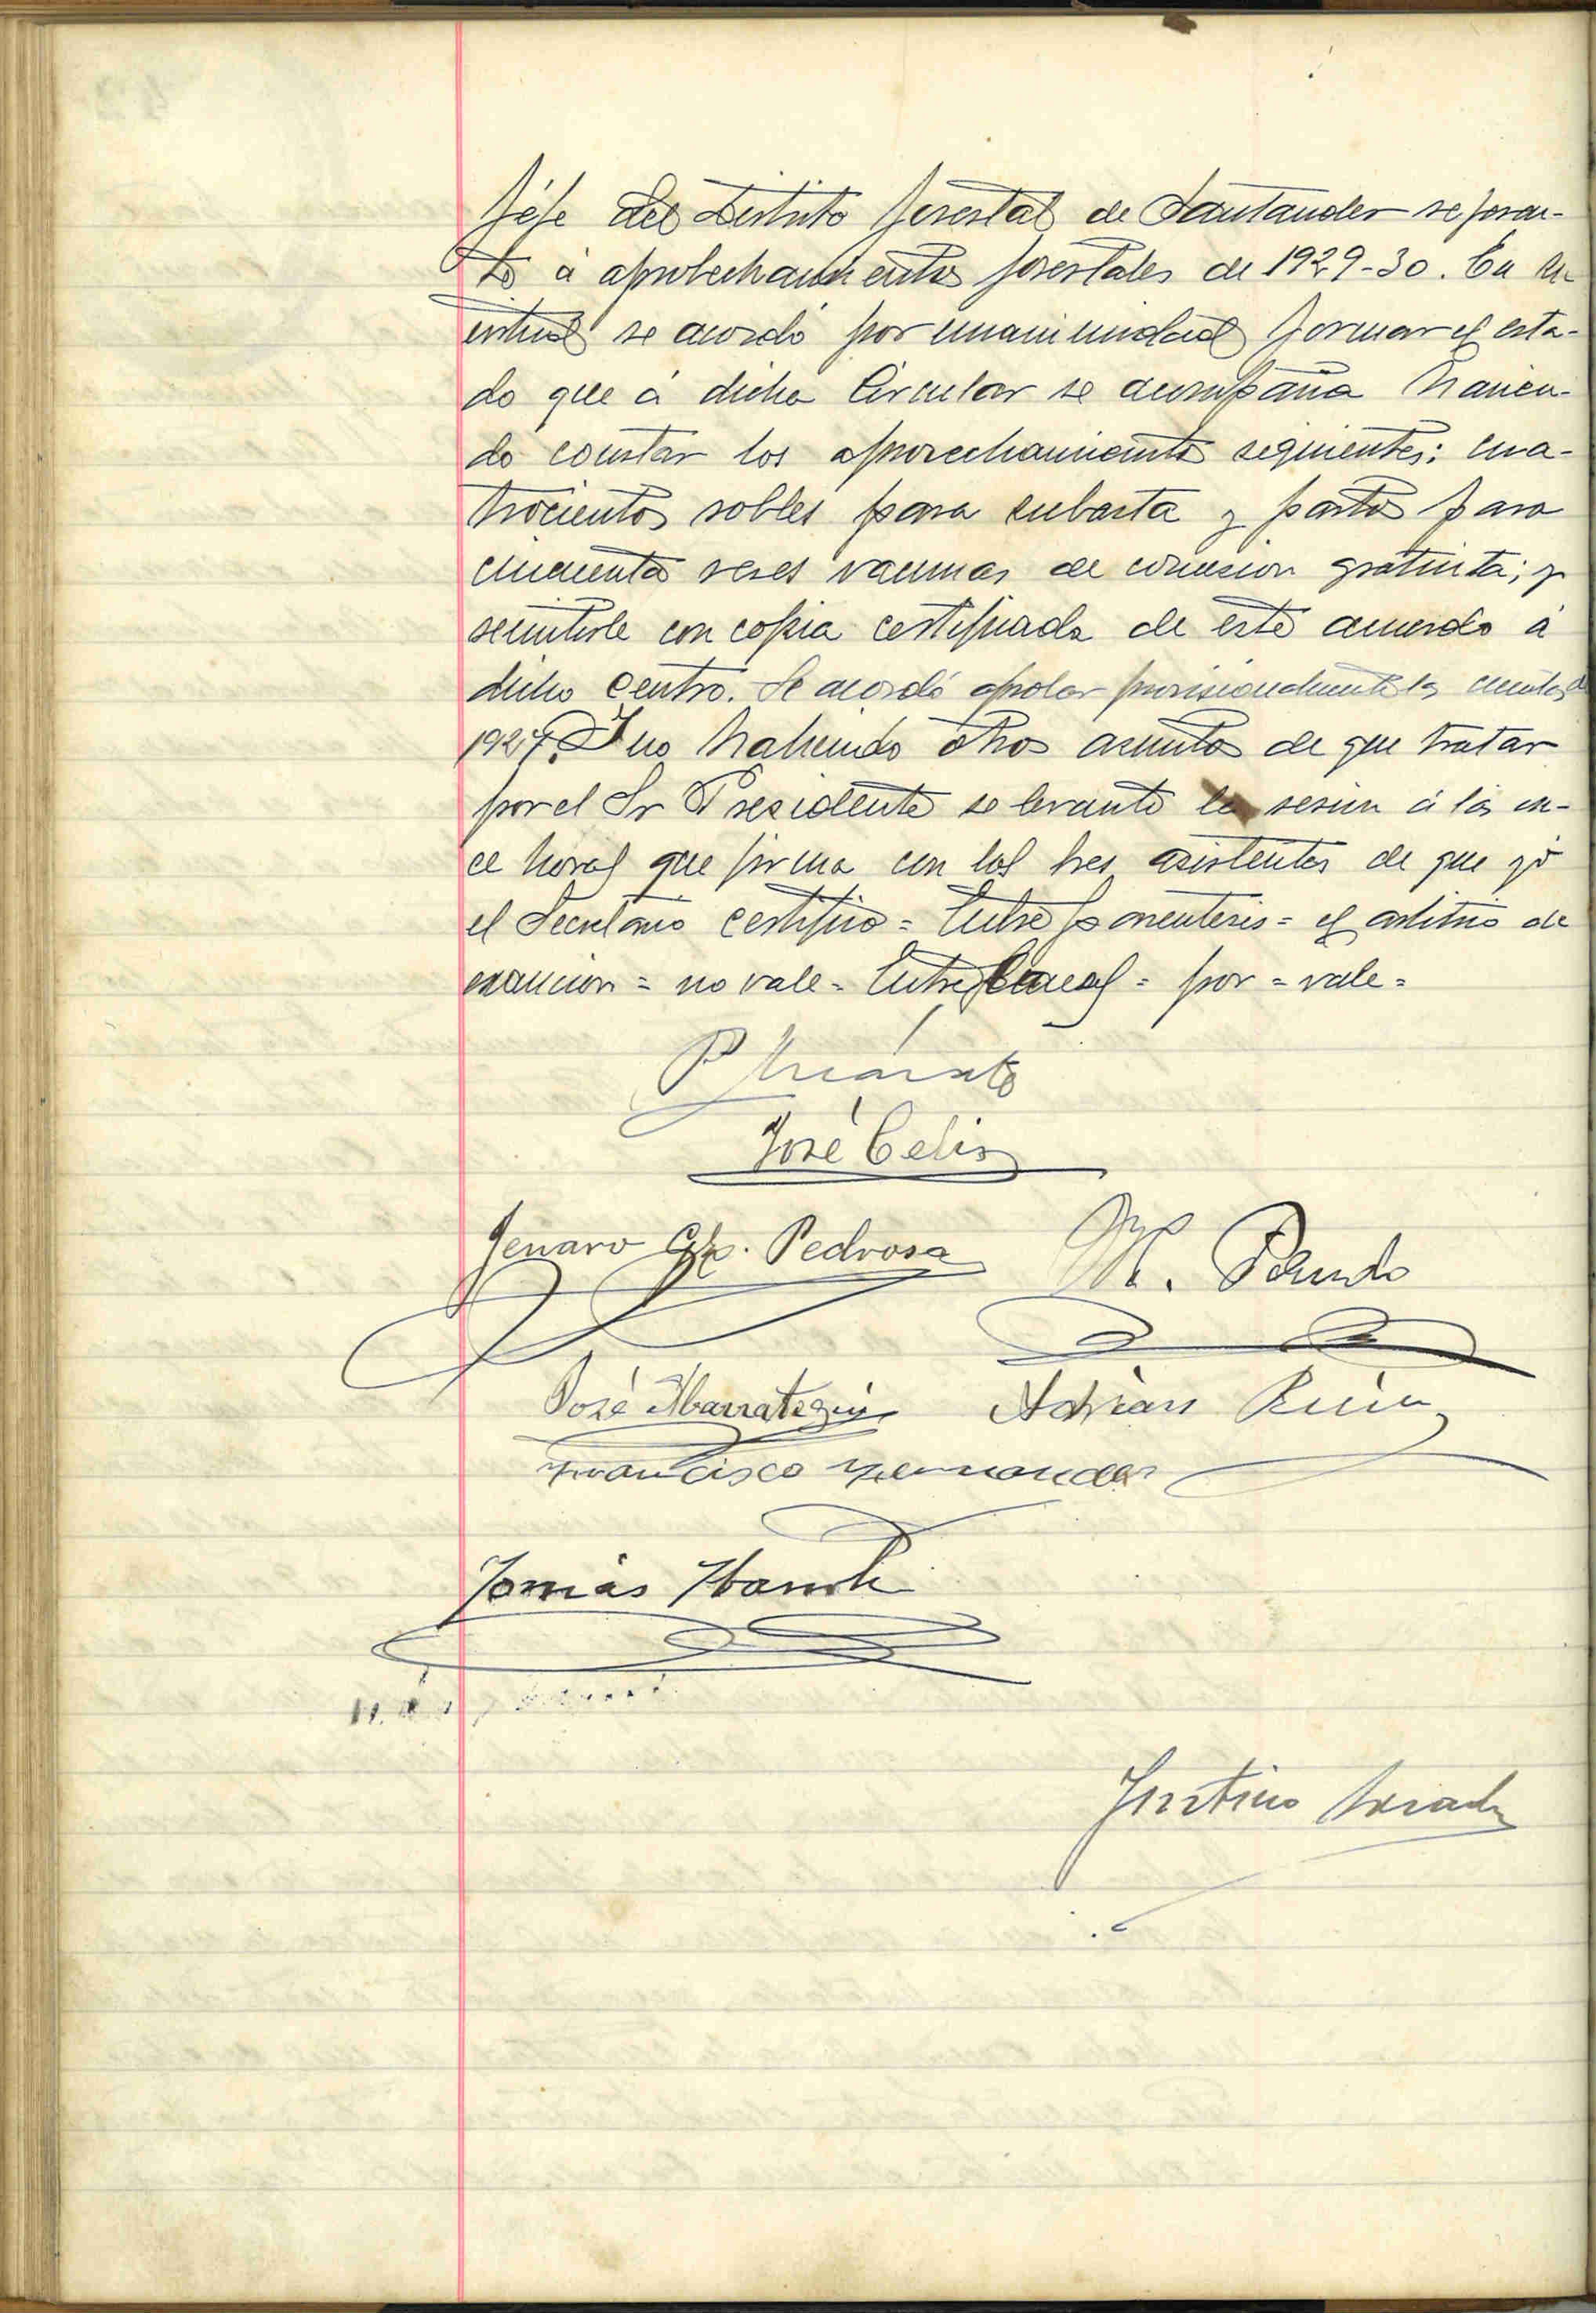 Jefe del Distrito forestal de Santander referen-
te á aprobechamientos forestales de 1929-30. En su
virtud se acordó por unanimidad formar el esta-
do que á dicha Circular se acompaña hacien-
do constar los aprovechamientos siguientes: cua-
trocientos robles para subasta y pastos para
cincuenta reses vacunas de concesion gratuita; y
remitirle con copia certificada de este acuerdo á
dicho Centro. Se acordó aprobar provisionalmente las cuentas de
192 Y no habiendo otros asuntos de que tratar
por el Sr Presidente se levantó la sesion á las on-
ce horas que firma con los tres asistentes de que yo
el Secretario certifico = Entre parentesis = el arbitrio de
exaccion = no vale = Entre lineas = por = vale =
P
José Celis
Genaro Gz. Pedrosa M. Pando
José Ibarrategui Adrian
Francisco Hernandez
Tomás
Justino